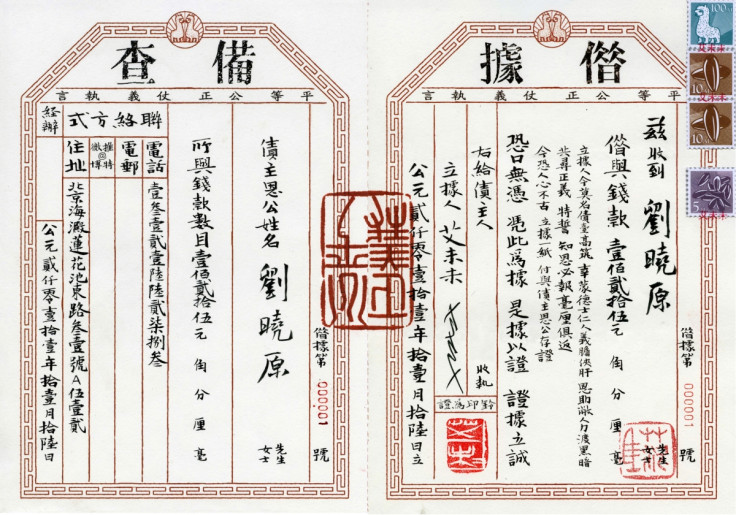 借據
平等公正仗義執言
茲收到 劉曉原 先生 女士
借與錢款 壹佰貳拾伍元 角 分 厘 毫
立據人今莫名債臺高筑 幸蒙德士仁人義膽俠肝 恩助微人力渡黑暗
共尋正義 特誓 知恩必報毫厘俱返
今恐人心不古 立據一紙 付與債主恩公存證
恐口無憑 憑此為據 是據以證 證據立誠
右給債主人 收執
立據人 艾未未
鈐印為證
公元貳仟零壹拾壹年拾壹月拾陸日立
借據第 000001 號
備查
平等公正仗義執言
借據第 000001 號
債主恩公姓名 劉曉原 先生 女士
所與錢款數目壹佰貳拾伍元 角 分 厘 毫
聯絡方式
電話 壹叁壹貳壹陸陸貳柒捌叁
電郵
推特@微博
住址 北京海澱蓮花池東路叁壹號A伍壹貳
經辦
公元貳仟零壹拾壹年拾壹月拾陸日